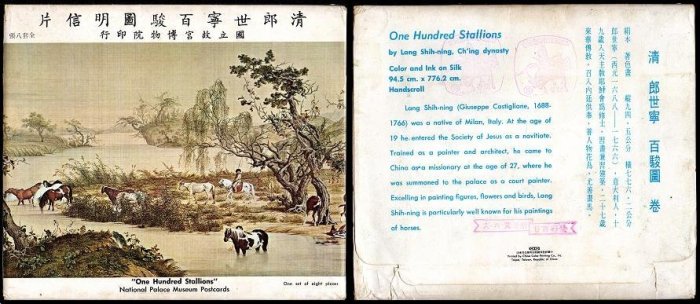 清郎世寧百駿圖明信片
國立故宮博物院印行
全套八張
"One Hundred Stallions"
National Palace Museum Postcards
One set of eight pieces
One Hundred Stallions
by Lang Shih-ning, Ch'ing dynasty
Color and Ink on Silk
94.5 cm. x 776.2 cm.
Handscroll
Lang Shih-ning (Giuseppe Castiglione, 1688-
1766) was a native of Milan, Italy. At the age of
19 he entered the Society of Jesus as a novitiate.
Trained as a painter and architect, he came to
China as a missionary at the age of 27, where he
was summoned to the palace as a court painter.
Excelling in painting figures, flowers and birds, Lang
Shih-ning is particularly well known for his paintings
of horses.
清 郎世寧 百駿圖 卷
絹本 著色畫 縱九四．五公分 橫七七六．二公分
郎世寧（西元一六八八—一七六六），意大利人，十
九歲入天主教耶穌會為修士，習畫兼習建築，二十七歲
來華傳教，召入內廷供奉，善人物花鳥，尤善畫馬。
Printed by China Color Printing Co., Inc.
Taipei, Taiwan, Republic of China